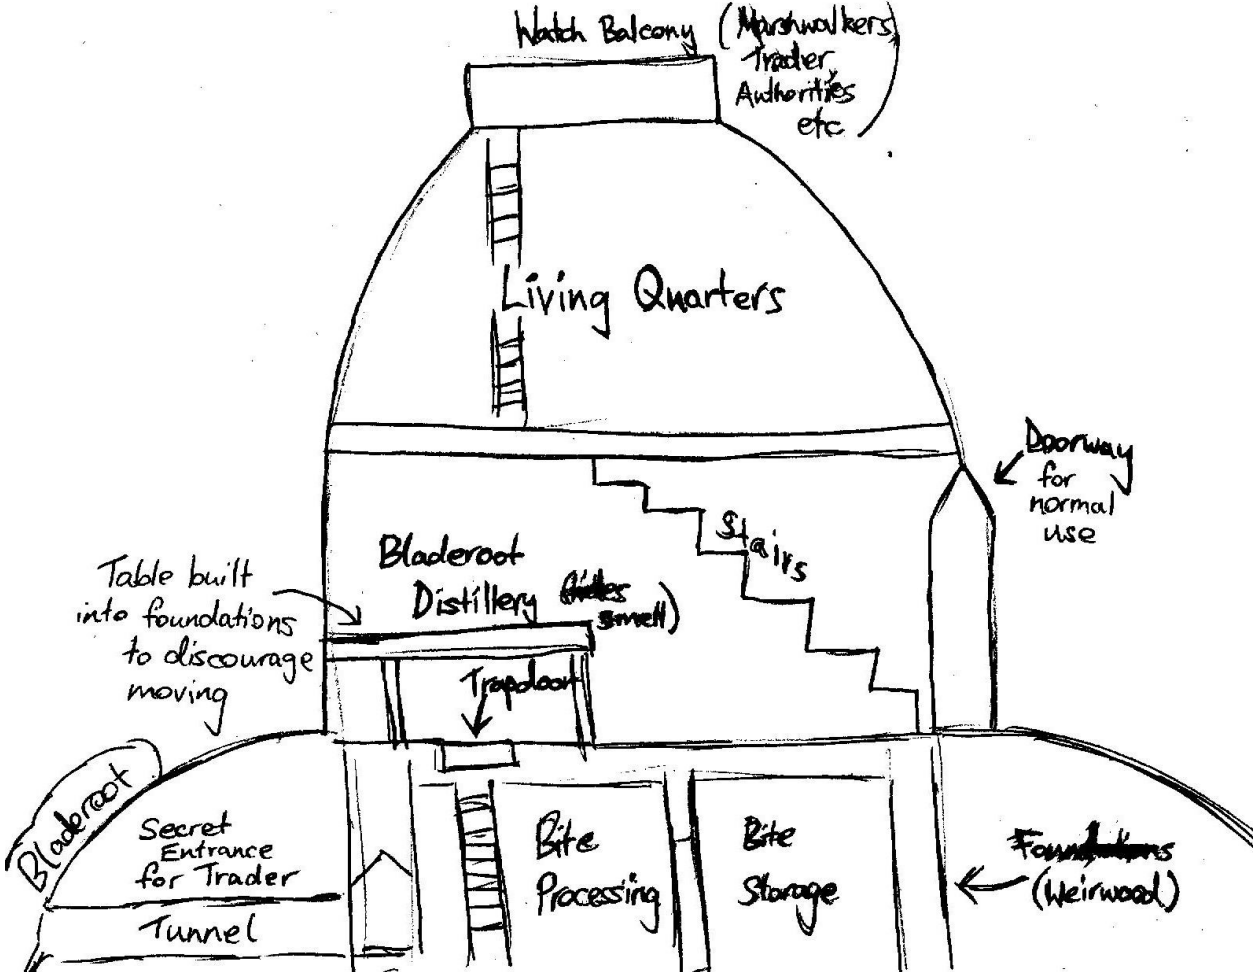 Watch Balcony
(Marshwalkers
Trader,
Authorities
etc)
Living Quarters
Doorway
for
normal
use
Stairs
Bladeroot
Distillery (hides
smell)
Table built
into foundations
to discourage
moving
Trapdoor
Bladeroot
Secret
Entrance
for Trader
Tunnel
Bite
Processing
Bite
Storage
Foundations
(Weirwood)